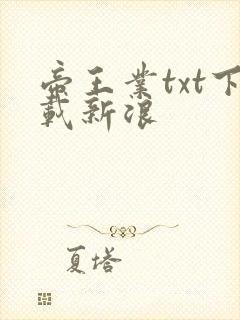 帝王业txt下
载新浪
夏塔